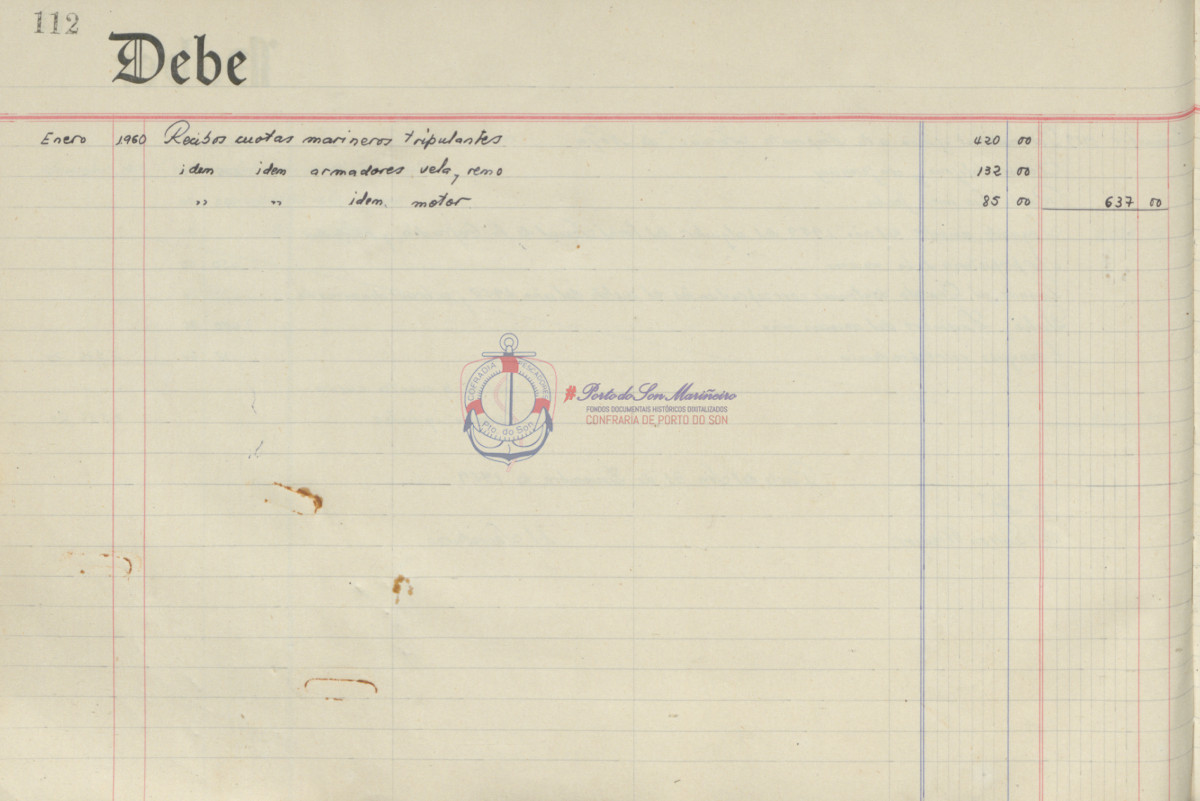 112
Debe
Enero 1960 Recibos cuotas marineros tripulantes 420 00
idem idem armadores vela, remo 132 00
" " idem. motor 85 00 637 00
COFRADIA PESCADORES
Pto. do Son
#Porto do Son Mariñeiro
FONDOS DOCUMENTAIS HISTÓRICOS DIXITALIZADOS
CONFRARÍA DE PORTO DO SON